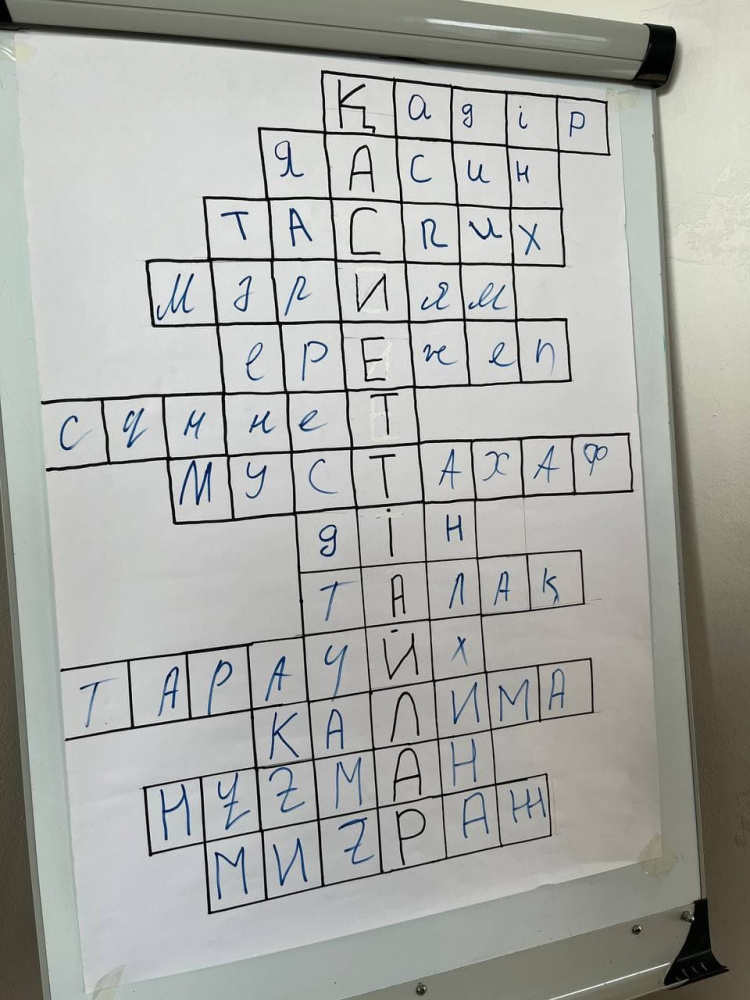 Қадір
ЯАсин
ТАСпих
МәрИям
ерЕжеп
сүннеТ
МУСТАХАФ
дін
ТАЛАҚ
ТАРАУЙХ
КАЛИМА
НҰҒМАН
МИҒРАЖ